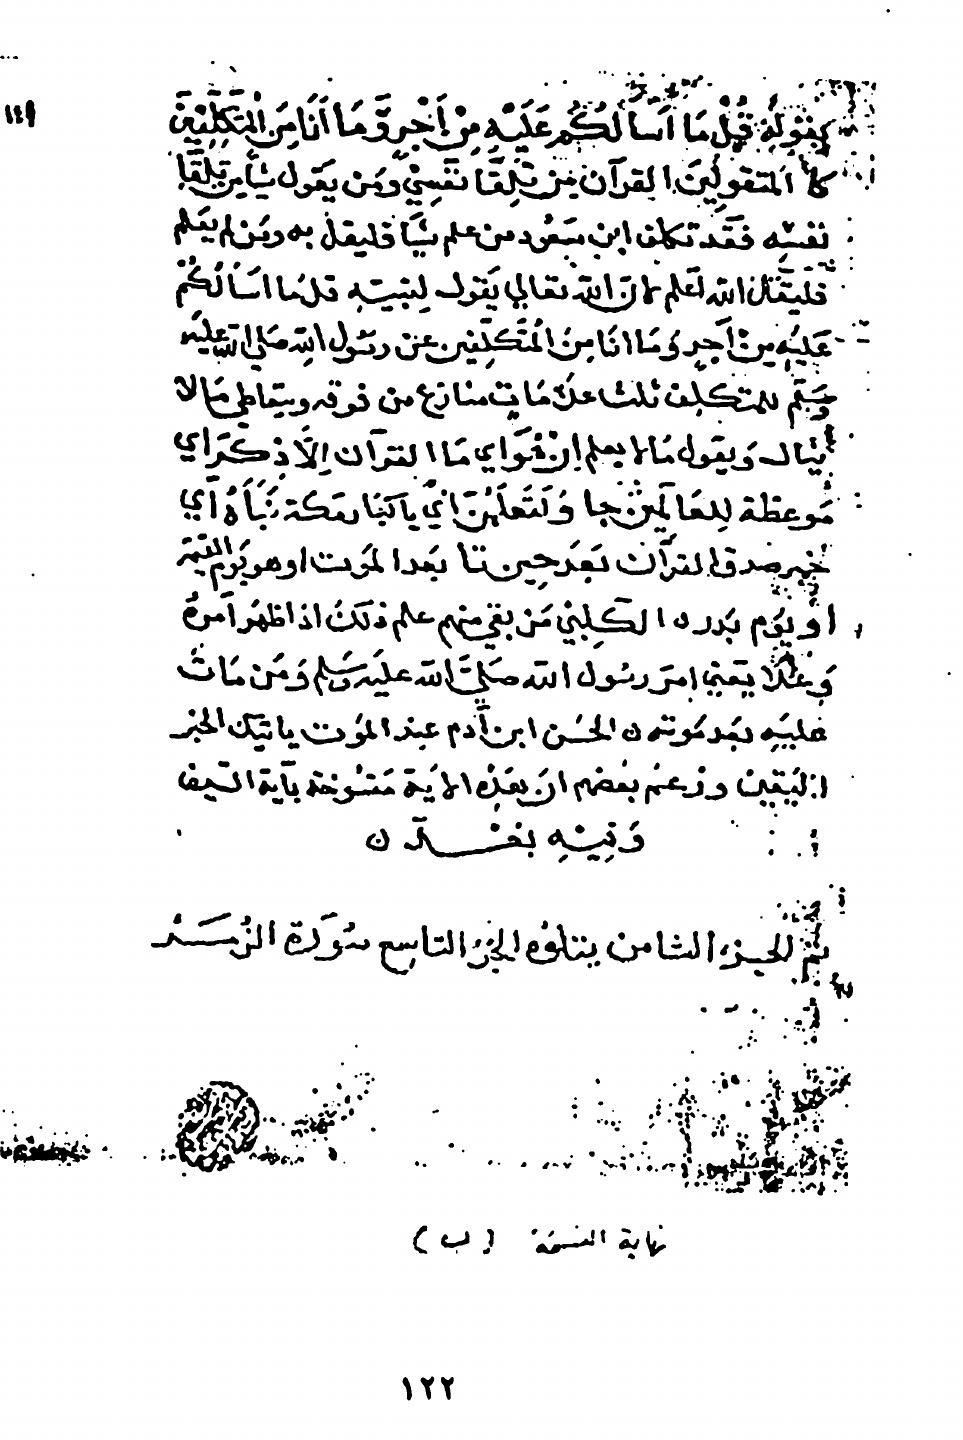 كقوله قُل مَا أسَألكُم عَلَيْهِ مِنْ أَجْرٍ وَّمَا أَنَا مِنَ المتَكَلِّفِينَ
كا المتقولينَ القرآن مِن تِلقَا نفسِي ومَن يَقول شيأ من تِلقَا
نفسِه فقَد تكلف ابن مسعُود من علم شيَّا فليقل به ومَن لم يَعلم
فليقل الله اعلم لانّ الله تعالى يَقول لِنبيّه قل مَا اسَألكُمْ
عَلَيْه مِنْ أجرٍ وَمَا انَا مِنَ المُتَكَلِّفِين عن رسُول الله صَلى الله عليْه
وسَلّم للمتكلِف ثلث علامَات ينازع من فوقه ويتعَاطى مَا لا
يُنَال وَيقول مَا لا يعلم اِنْ هُوَ اي مَا القرآن اِلاَّ ذِكرٌ اي
مَوعظة لِلعَالمِين وَلَتَعْلَمُنّ اي يَا كفّار مَكة نَبَأهُ اي
خبر صدق القرآن بَعدَ حِين بَعد الموت او هو يَوم القيمة
اوْ يَوم بَدر ٥ الكلبِي مَن بَقي منهم علم ذلكَ اذا ظهر أمرهُ
وَعَلا يَعني امرَ رسُول الله صَلى الله عليه وسَلم وَمَن مَات
علمه بَعد مَوته ٥ الحَسن ابن آدم عِند الموت ياتيك الخبر
اليَقِين وزعمَ بعضهم انّ هذِه الايَة مَنسُوخة بآية السّيف
وَفِيْهِ بُعْــدٌ ن
تم الجزء الثامن يتلوه الجزء التاسع سُورَة الزُمَــر
نهاية النسخة ( ب )
١٢٢